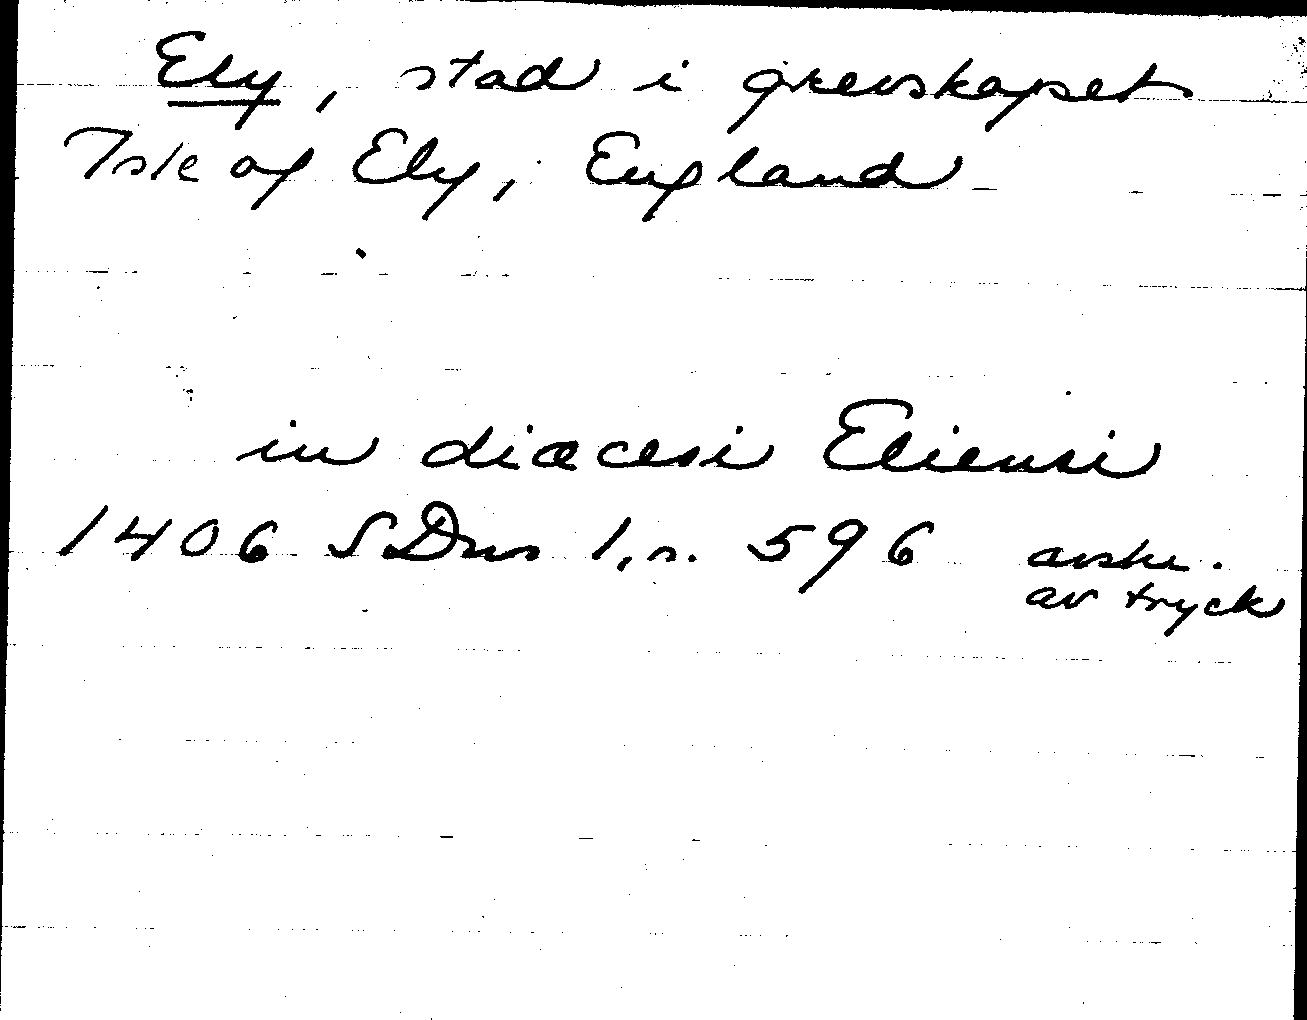 Ely, stad i grevskapet
Isle of Ely, England
in diœcesi Eliensi
1406 SDns 1, s. 596 avskr.
av tryck